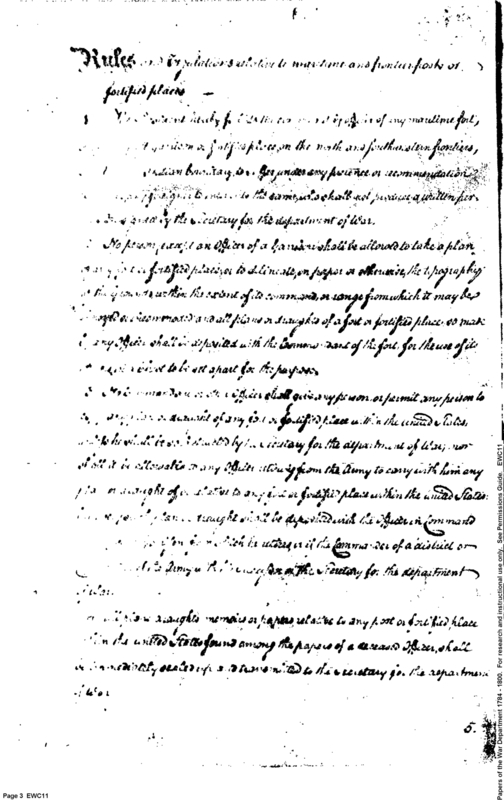 Rules and Regulations relative to maritime and frontier posts or
fortified places —
President hereby commanding officer of any maritime fort,
garrison or fortified place, on the north and southwestern frontiers,
Indian boundary, to under any pretence or recommendation
to the same, who shall not produce a written per-
by the Secretary for the department of War.
No person, except an Officer of a Garrison shall be allowed to take a plan
of any fort or fortified place, or to delineate, on paper or otherwise, the typography
of the grounds within the extent of its command, or range from which it may be
or incommoded and all plans or draughts of a fort or fortified place so made
by any Officer shall be deposited with the Commandant of the fort, for the use of its
to be set apart for the purpose.
No Commandant or other Officer shall give any person or permit any person to
plan or draught of any fort or fortified place within the United States,
shall be by the Secretary for the department of War, nor
shall it be allowed to any Officer retiring from the Army to carry with him any
plan or draught of or relative to any fort or fortified place within the United States
plan or draught shall be deposited with the Officer in Command
from which he retires or if the Commander of a district or
Army with the Secretary for the department
of War.
all plans draughts memoirs or papers relative to any post or fortified place
within the United States found among the papers of a deceased Officer, shall
be immediately sealed up and transmitted to the Secretary for the department
of War
5.
Page 3 EWC11
Papers of the War Department 1784 - 1800. For research and instructional use only. See Permissions Guide. EWC11